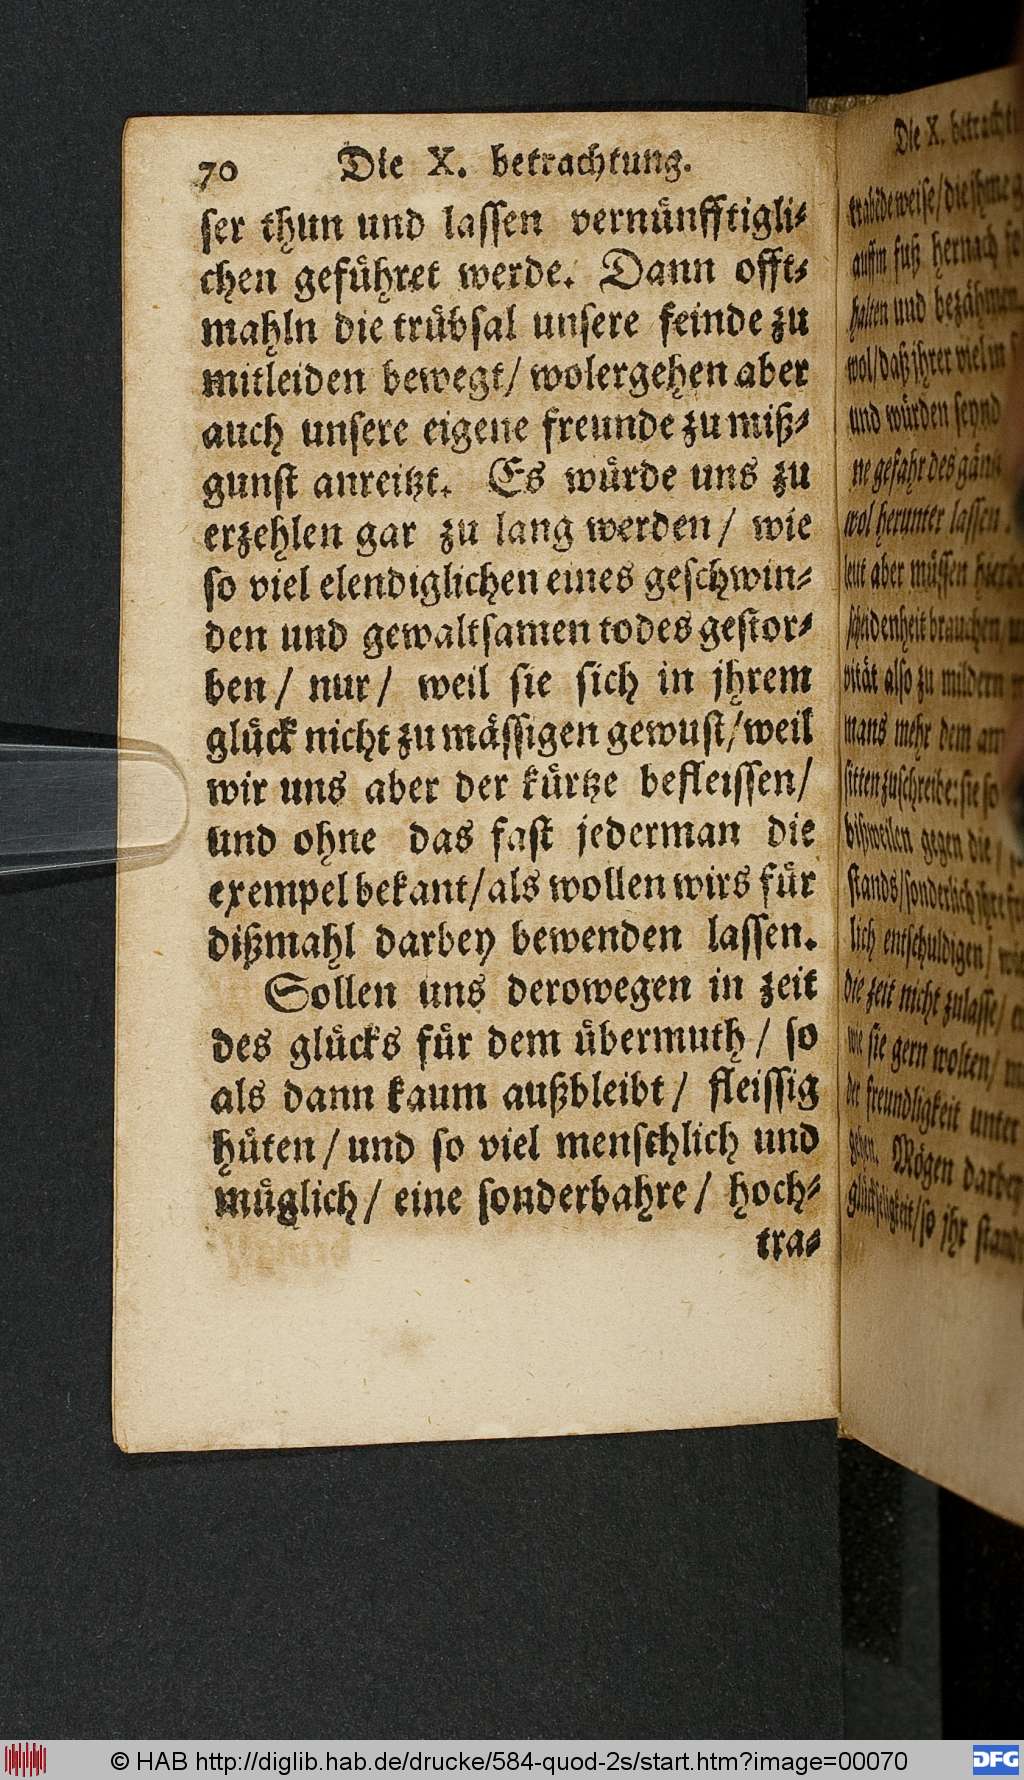 70 Die X. betrachtung.
ser thun und lassen vernünfftigli-
chen geführet werde. Dann offt-
mahln die trübsal unsere feinde zu
mitleiden bewegt/ wolergehen aber
auch unsere eigene freunde zu miß-
gunst anreitzt. Es würde uns zu
erzehlen gar zu lang werden/ wie
so viel elendiglichen eines geschwin-
den und gewaltsamen todes gestor-
ben/ nur/ weil sie sich in jhrem
glück nicht zu mässigen gewust/weil
wir uns aber der kürtze befleissen/
und ohne das fast jederman die
exempel bekant/als wollen wirs für
dißmahl darbey bewenden lassen.
Sollen uns derowegen in zeit
des glücks für dem übermuth/ so
als dann kaum außbleibt/ fleissig
hüten/ und so viel menschlich und
müglich/ eine sonderbahre/ hoch-
tra-
Die X.
weise/
fuß hernach
halten und bezähmen
wol/daß jhrer viel in
und würden seynd
ne gefahr des
wol herunter lassen.
leut aber müssen
scheidenheit brauchen
vität also zu mildern
mans mehr dem
sitten zuschreibe: sie so
bißweilen gegen die
stands/sonderlich
lich entschuldigen/
die zeit nicht zulasse/
wie sie gern wolten/
der freundligkeit unter
geben. Mögen darbey
glückseligkeit/so jhr
© HAB http://diglib.hab.de/drucke/584-quod-2s/start.htm?image=00070
DFG